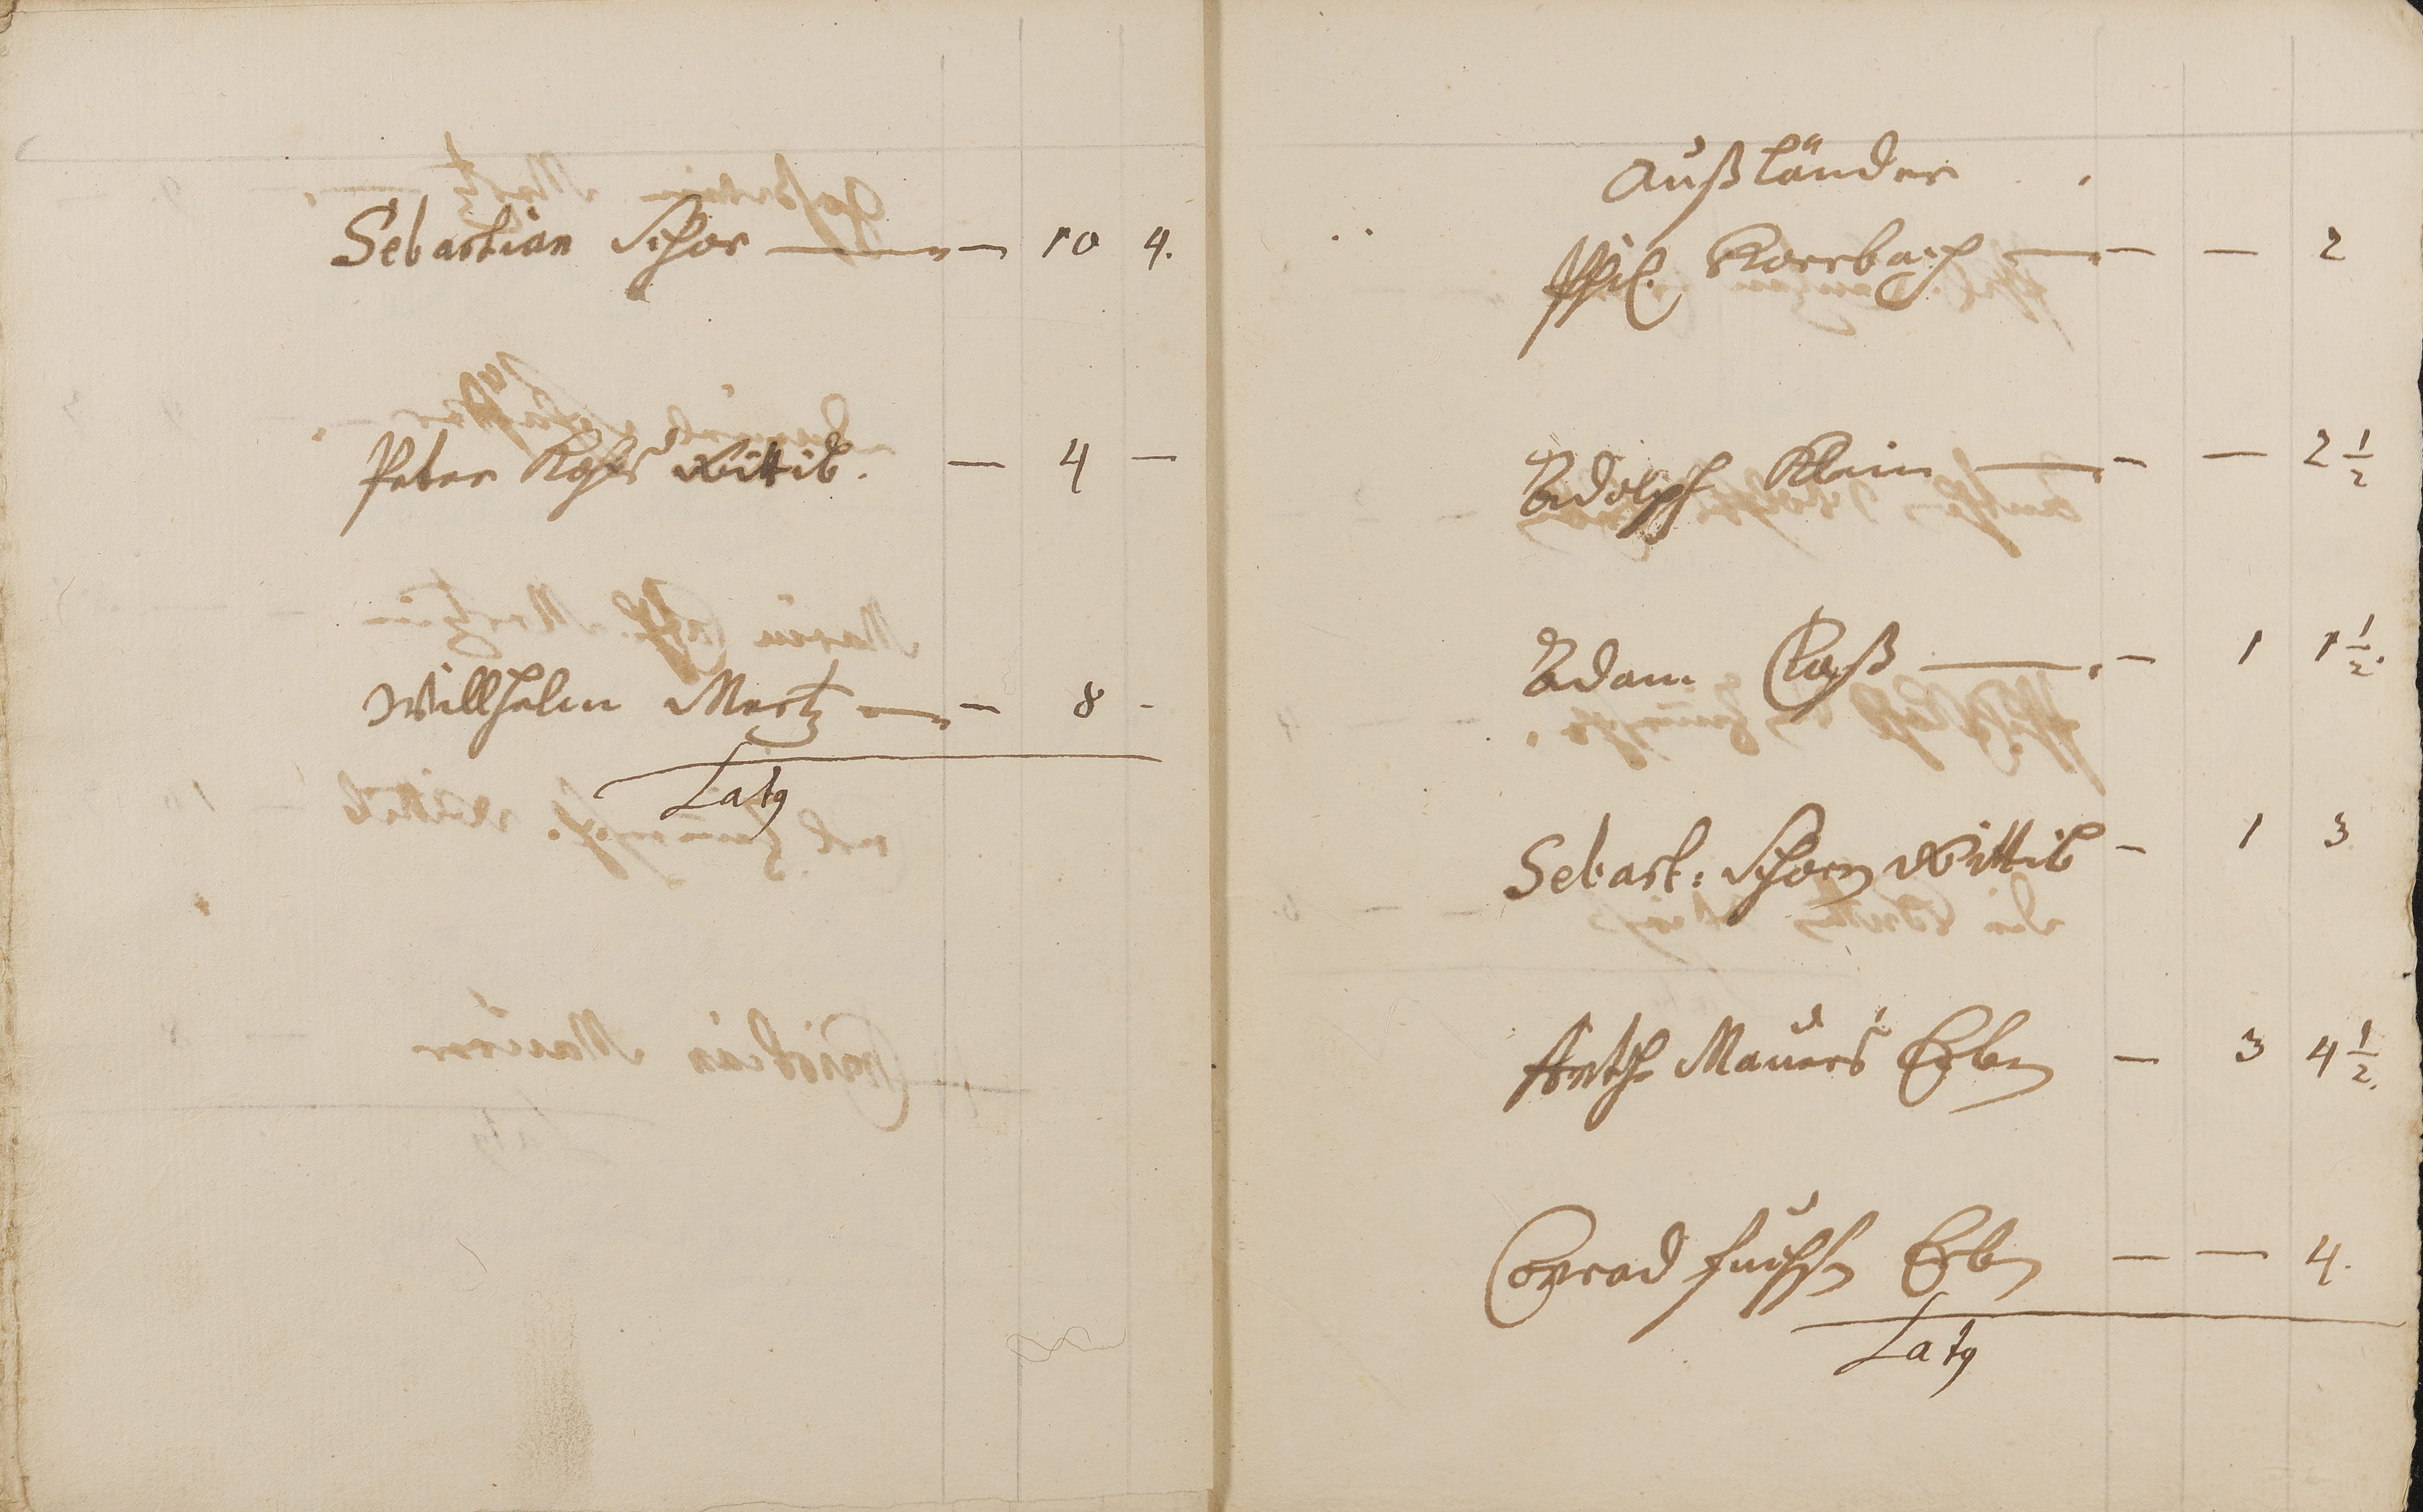 Sebastian Schor — — 10 4.
Peter Kochs Wittib. — 4 —
Willhelm Mertz — — 8 -
Latg
Außländer
Phil. Korrbach — — — 2
Adolph Klein — — — 2 1/2
Adam Claß — — 1 1 1/2.
Sebast: Schorn Wittib — 1 3
Anth. Mauers Erben — 3 4 1/2.
Conrad Fuchsen Erben — — 4.
Latg